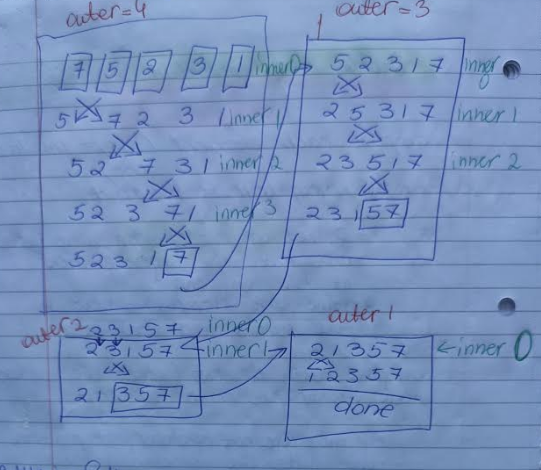 outer=4
7 5 2 3 1 inner0
5 7 2 3 1 inner 1
5 2 7 3 1 inner 2
5 2 3 7 1 inner 3
5 2 3 1 7
outer=3
5 2 3 1 7 inner
2 5 3 1 7 inner 1
2 3 5 1 7 inner 2
2 3 1 5 7
outer 2
2 3 1 5 7 inner0
2 3 1 5 7 inner1
2 1 3 5 7
outer 1
2 1 3 5 7 inner 0
1 2 3 5 7
done